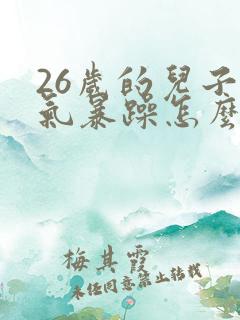 26歲的兒子
氣暴躁怎麼
梅其霞
未经同意禁止转载